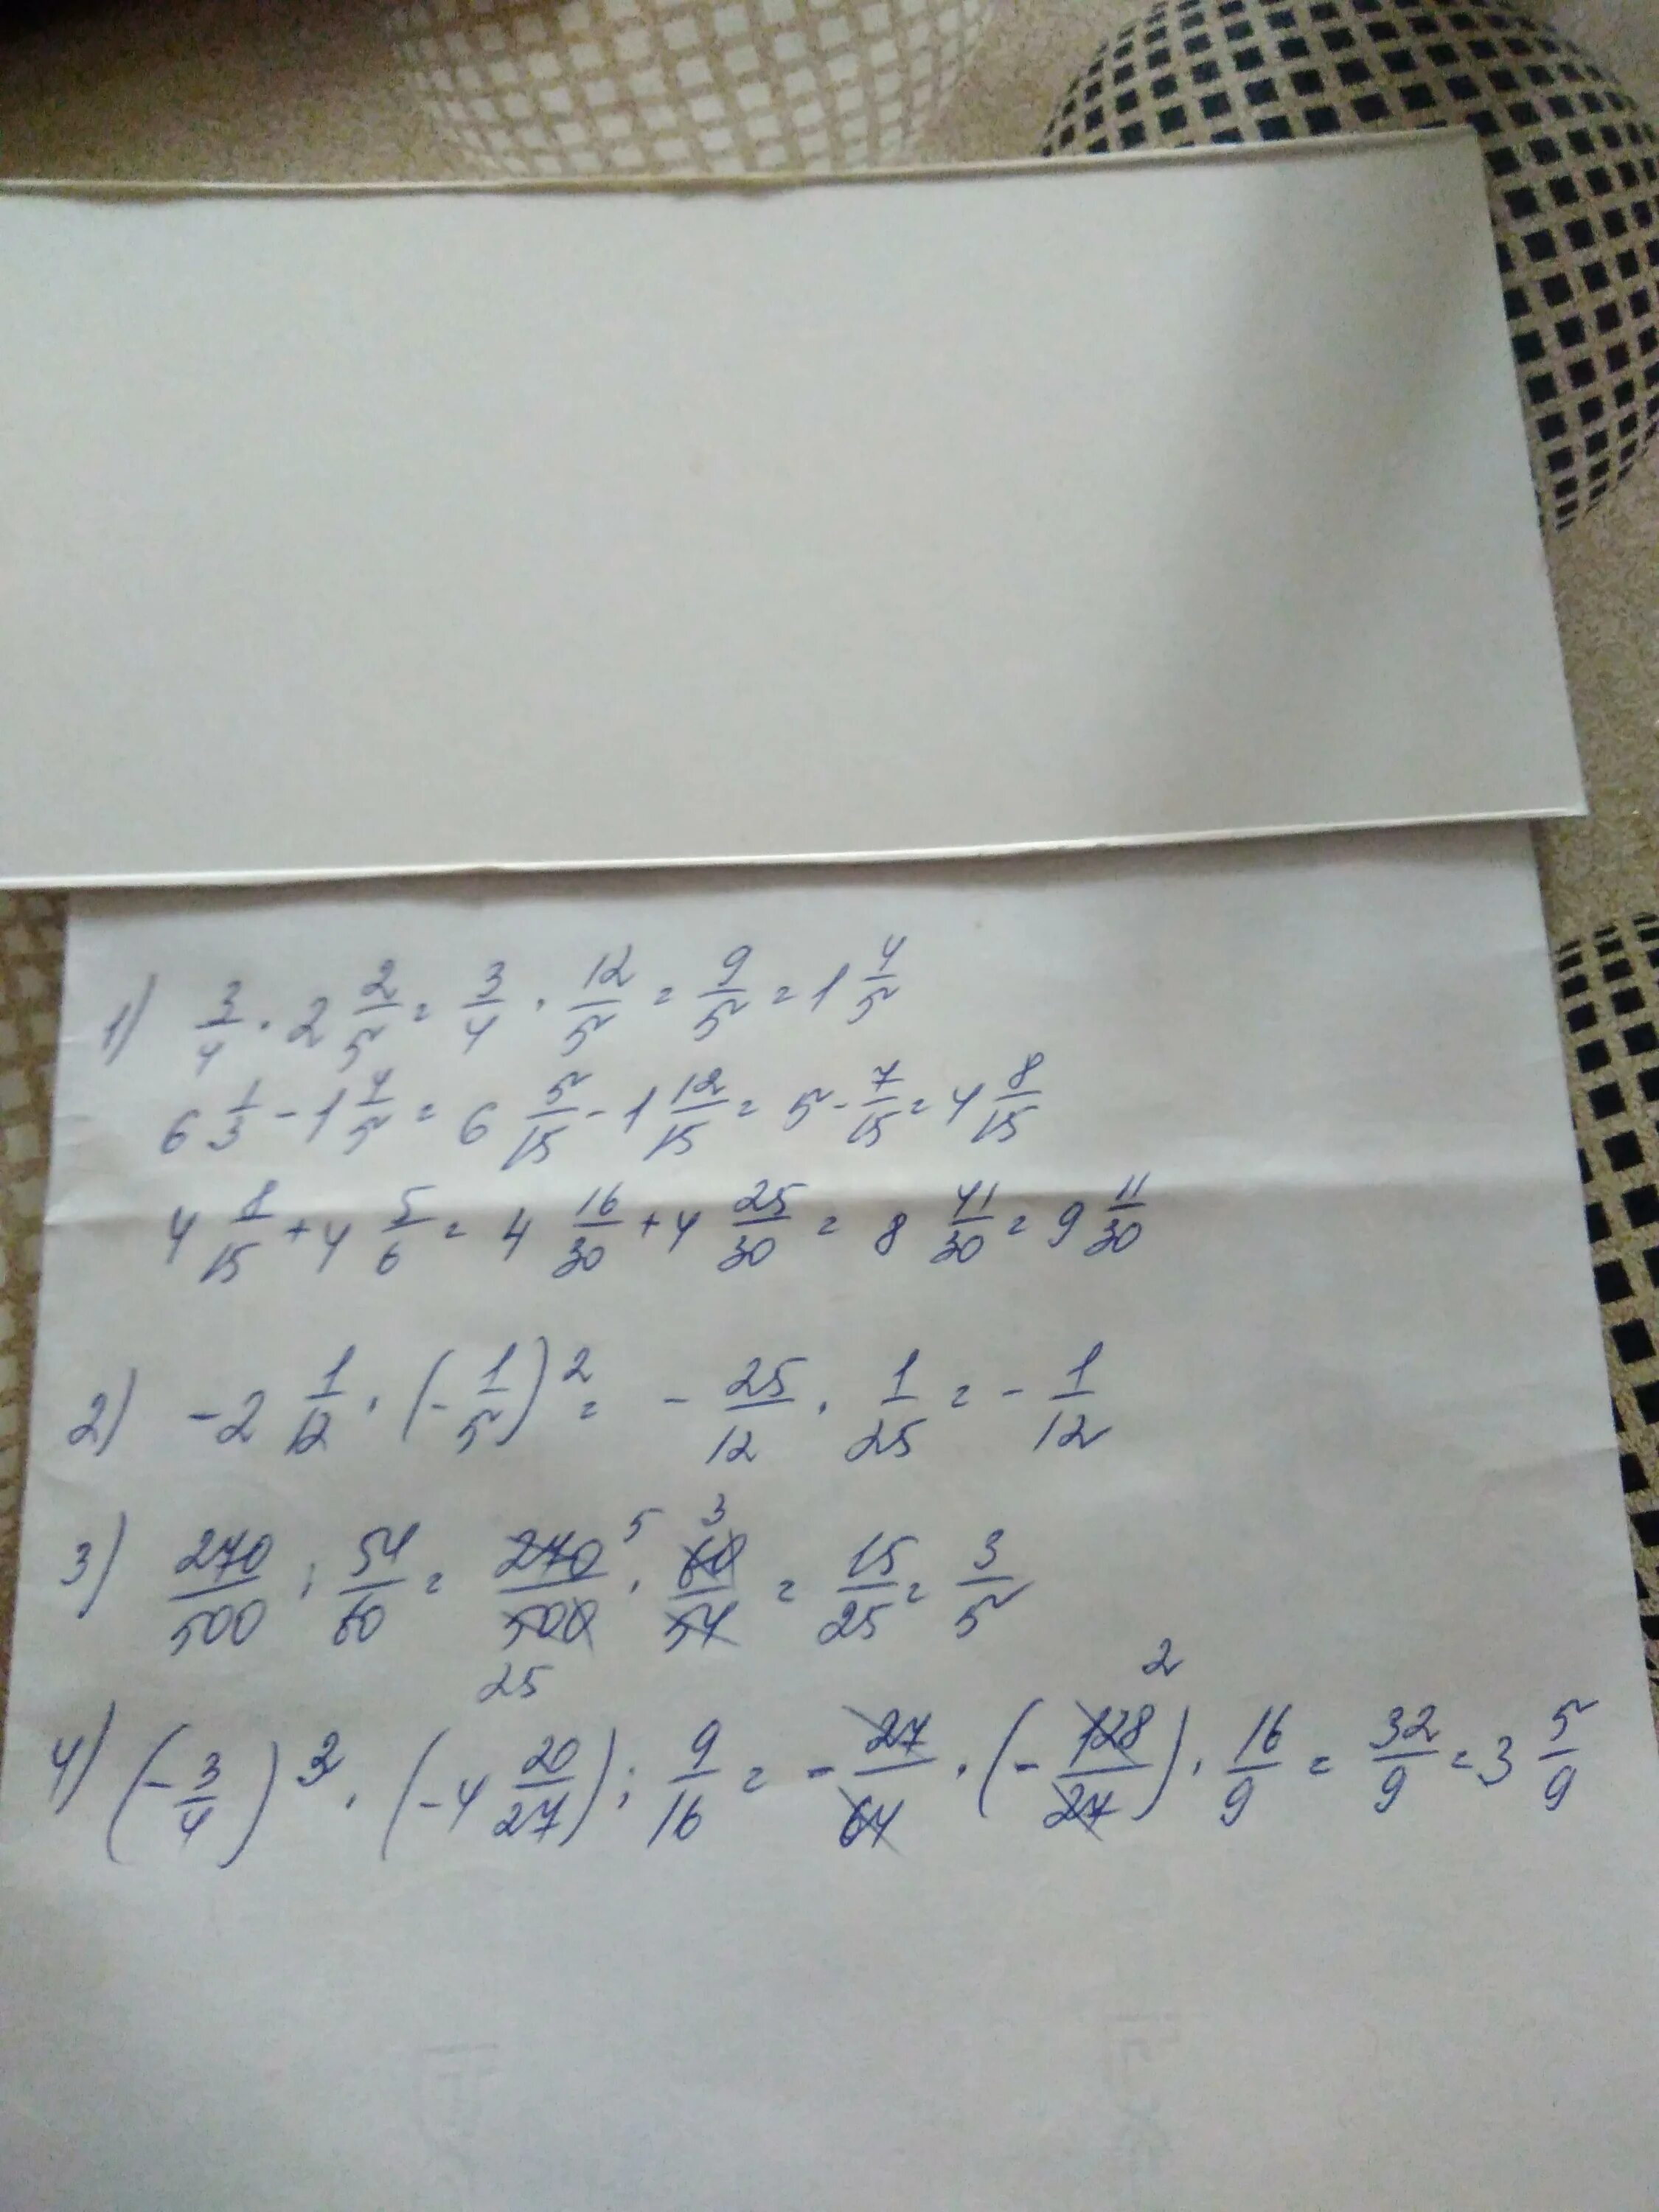 1) 3/4 · 2 2/5 = 3/4 · 12/5 = 9/5 = 1 4/5
6 1/3 - 1 4/5 = 6 5/15 - 1 12/15 = 5 - 7/15 = 4 8/15
4 8/15 + 4 5/6 = 4 16/30 + 4 25/30 = 8 41/30 = 9 11/30
2) -2 1/12 · (-1/5)² = - 25/12 · 1/25 = - 1/12
3) 270/500 : 54/60 = 270/500 5 25 · 60/54 3 = 15/25 = 3/5
4) (-3/4)³ · (-4 20/27) : 9/16 = - 27/64 · (- 128/27) 2 · 16/9 = 32/9 = 3 5/9